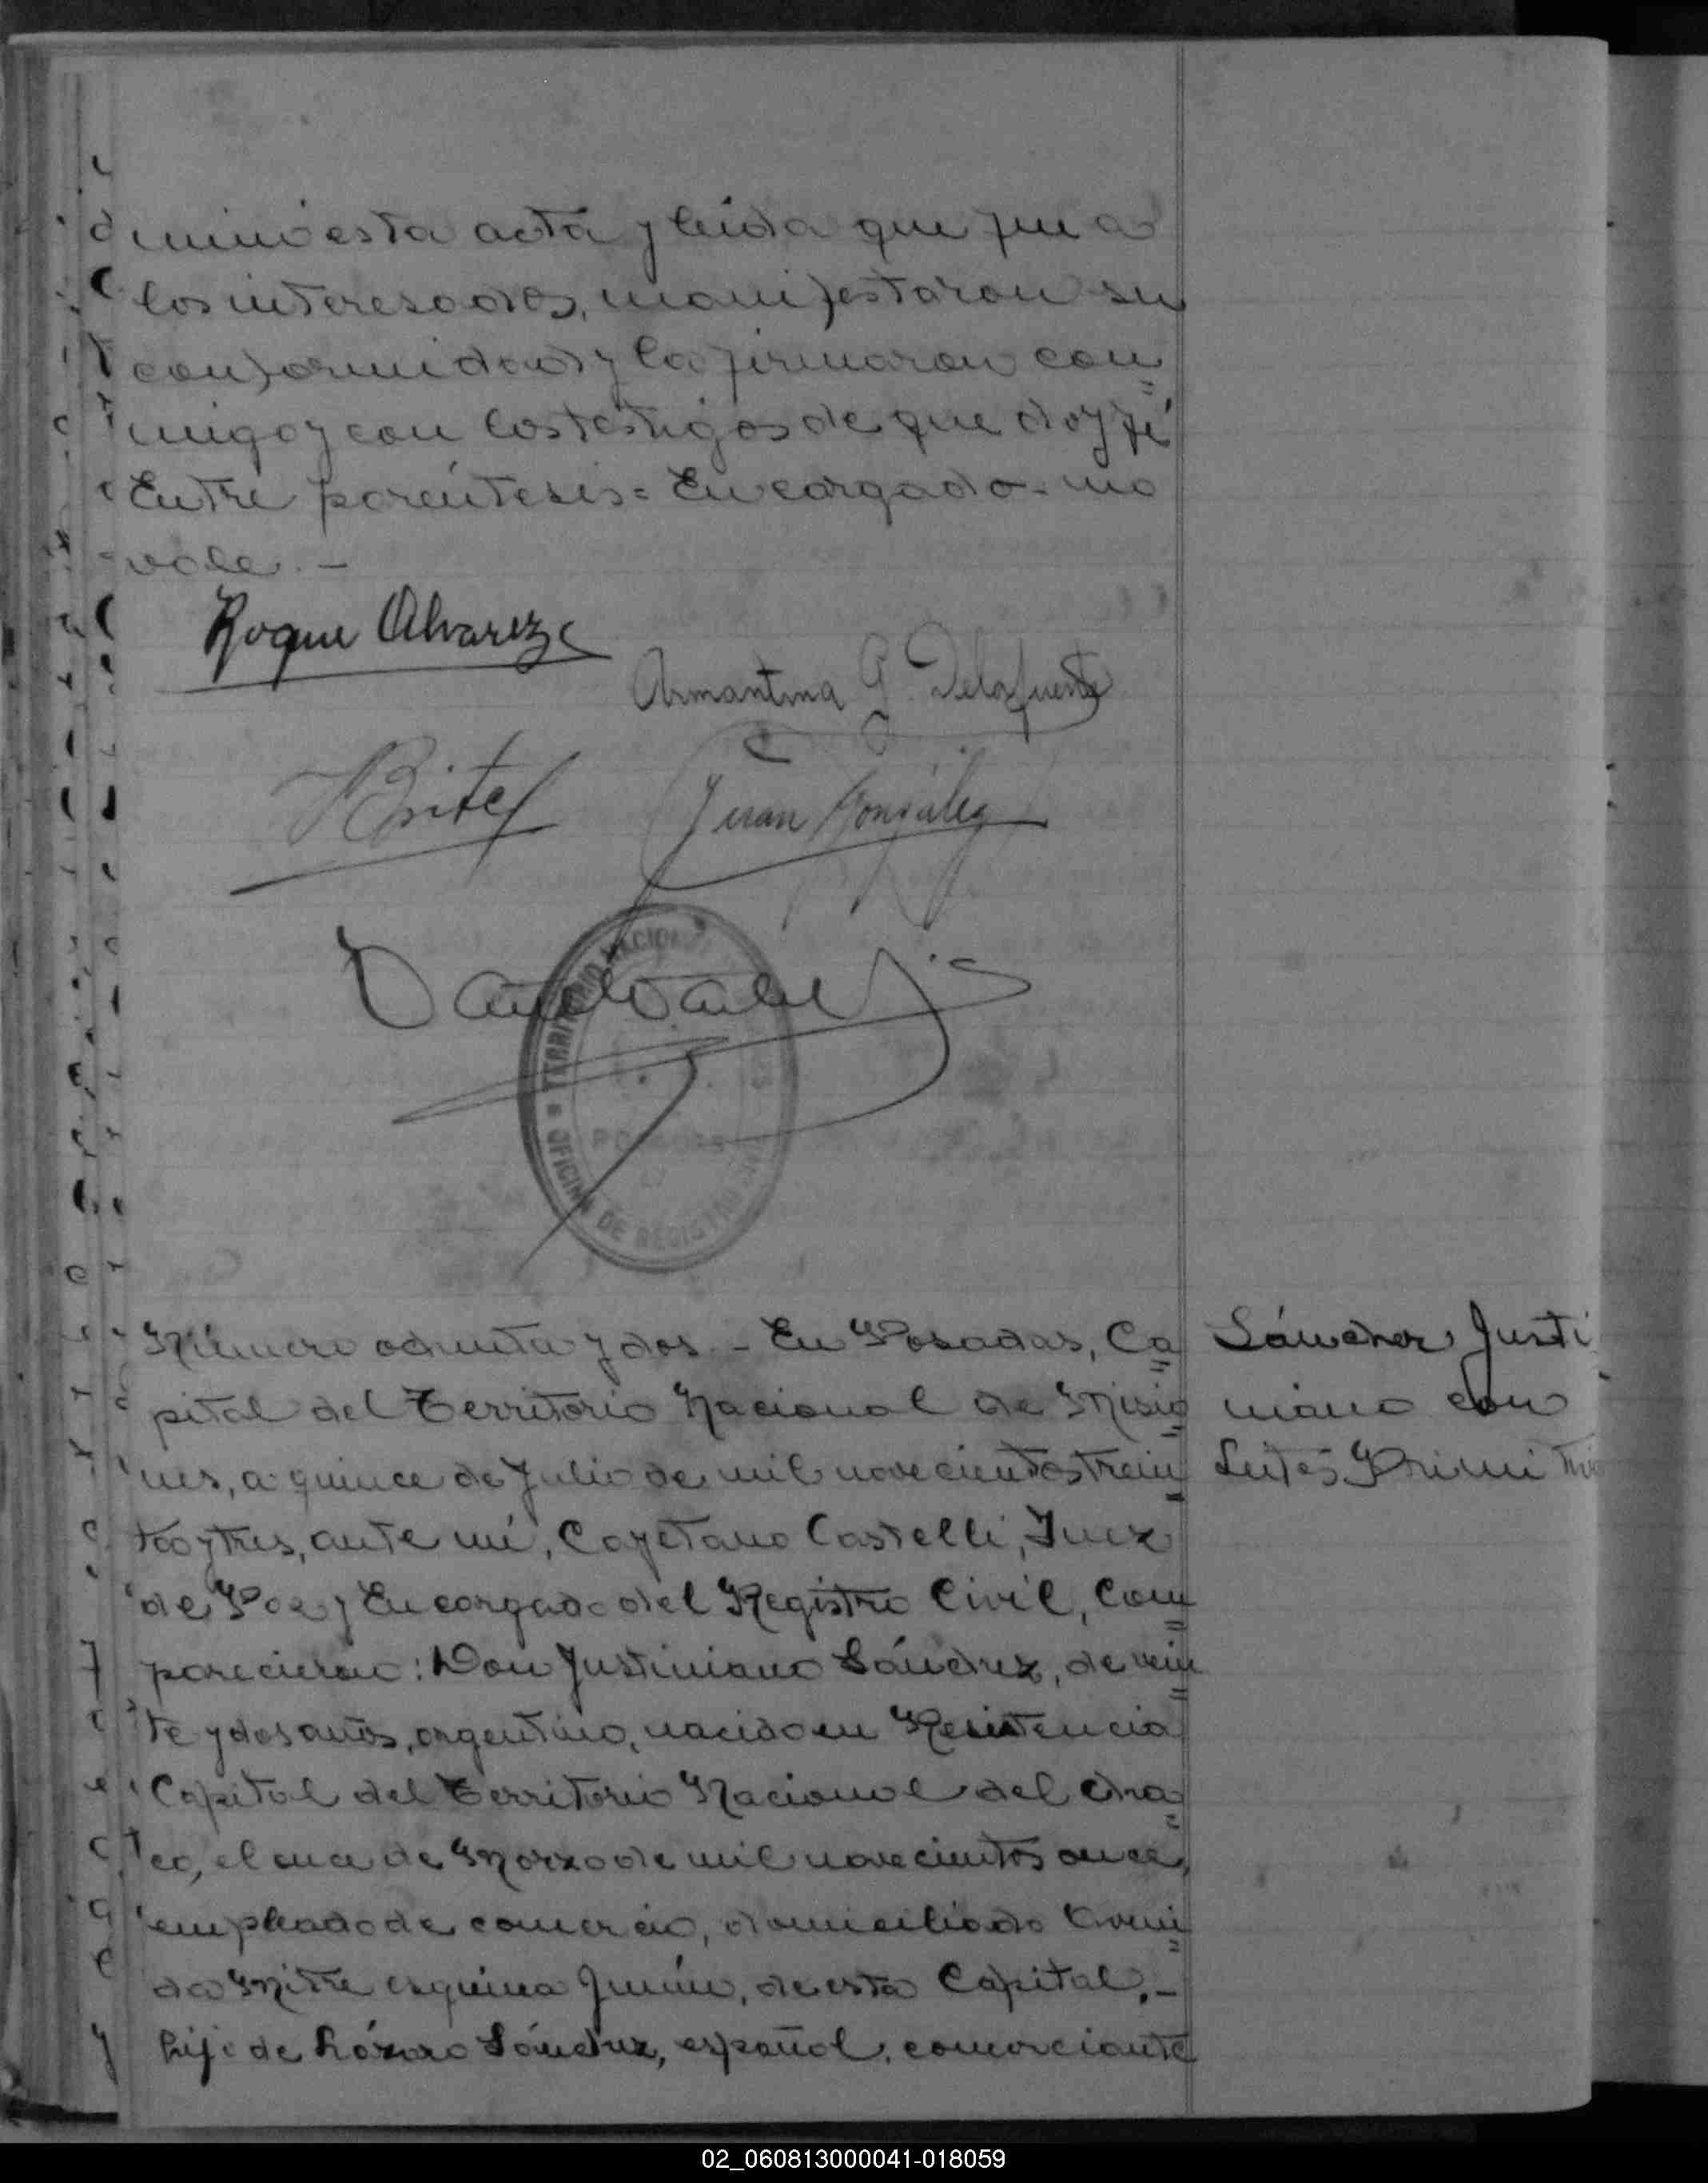 minó esta acta y leída que fue a
los interesados, manifestaron su
conformidad y la firmaron con
migo y con los testigos de que doy fé
Entre paréntesis = Encargado - no
vale. -
Roque Alvarez
Armantina G. Delafuente
Juan González
TERRITORIO NACIONAL
POSADAS
OFICINA DE REGISTRO
Número ochenta y dos. - En Posadas, Ca
pital del Territorio Nacional de Misio
nes, a quince de Julio de mil novecientos trein
ta y tres, ante mí, Cayetano Castelli, Juez
de Paz y Encargado del Registro Civil, Com
parecieron: Don Justiniano Sánchez, de vein
te y dos años, argentino, nacido en Resistencia
Capital del Territorio Nacional del Cha
co, el once de Marzo de mil novecientos once,
empleado de comercio, domiciliado Aveni
da Mitre esquina Junín, de esta Capital, -
hijo de Lázaro Sánchez, español, comerciante
Sánchez Justi
niano con
Leites Primitiva
02_060813000041-018059